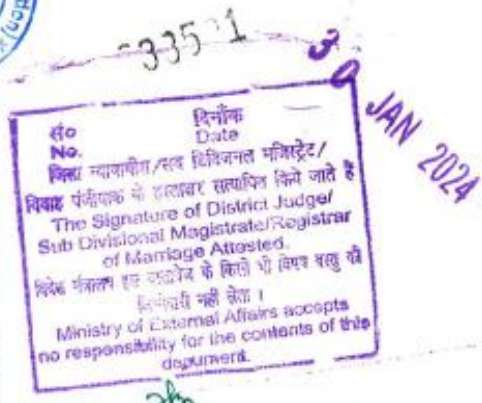 30 JAN 2024
सं० दिनाँक
No. Date
जिला न्यायाधीश/सब डिविजनल मजिस्ट्रेट/
विवाह पंजीयक के हस्ताक्षर सत्यापित किये जाते हैं
The Signature of District Judge/
Sub Divisional Magistrate/Registrar
of Marriage Attested.
विदेश मंत्रालय इस दस्तावेज के किसी भी विषय वस्तु की
जिम्मेदारी नहीं लेता ।
Ministry of External Affairs accepts
no responsibility for the contents of this
document.